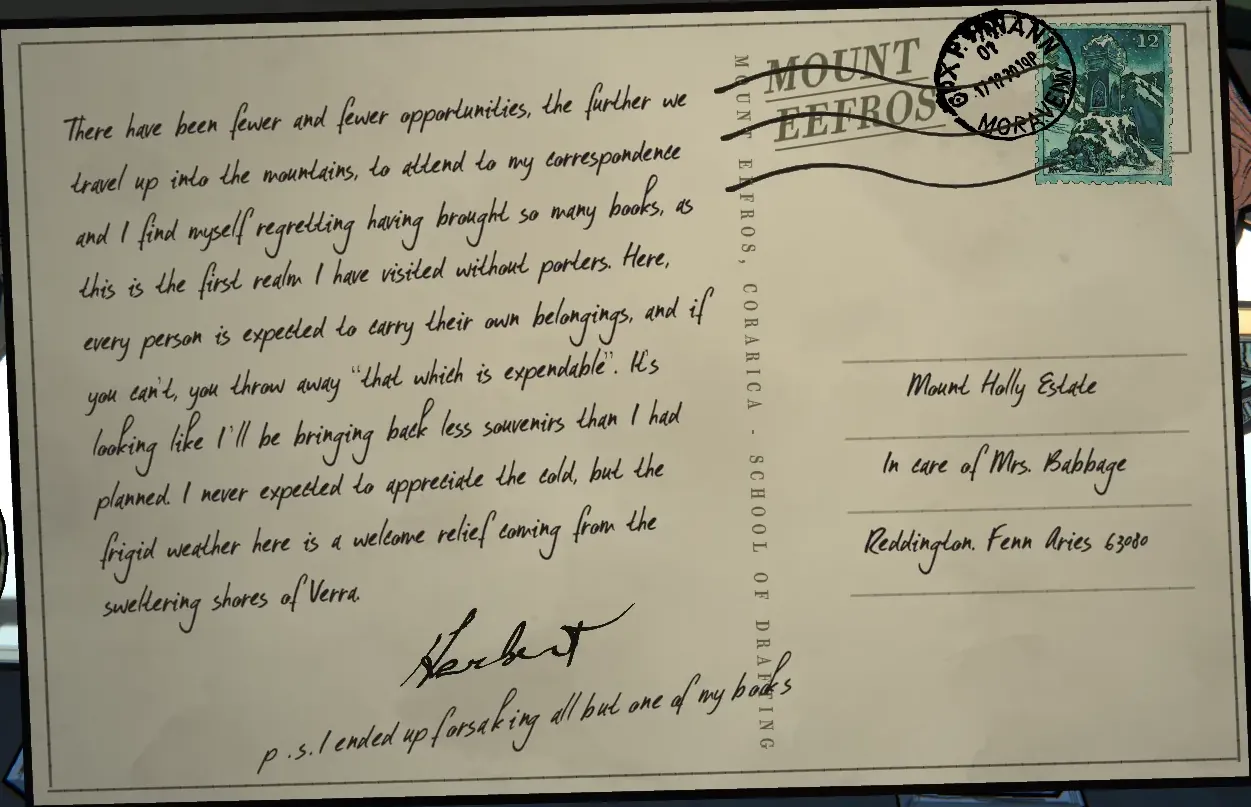 There have been fewer and fewer opportunities, the further we
travel up into the mountains, to attend to my correspondence
and I find myself regretting having brought so many books, as
this is the first realm I have visited without porters. Here,
every person is expected to carry their own belongings, and if
you can't, you throw away "that which is expendable". It's
looking like I'll be bringing back less souvenirs than I had
planned. I never expected to appreciate the cold, but the
frigid weather here is a welcome relief coming from the
sweltering shores of Verra.
Herbert
p.s. I ended up forsaking all but one of my books
MOUNT EEFROS, CORARICA - SCHOOL OF DRAFTING
MOUNT
EEFROS
MORAVENN
12
Mount Holly Estate
In care of Mrs. Babbage
Reddington. Fenn Aries 63080